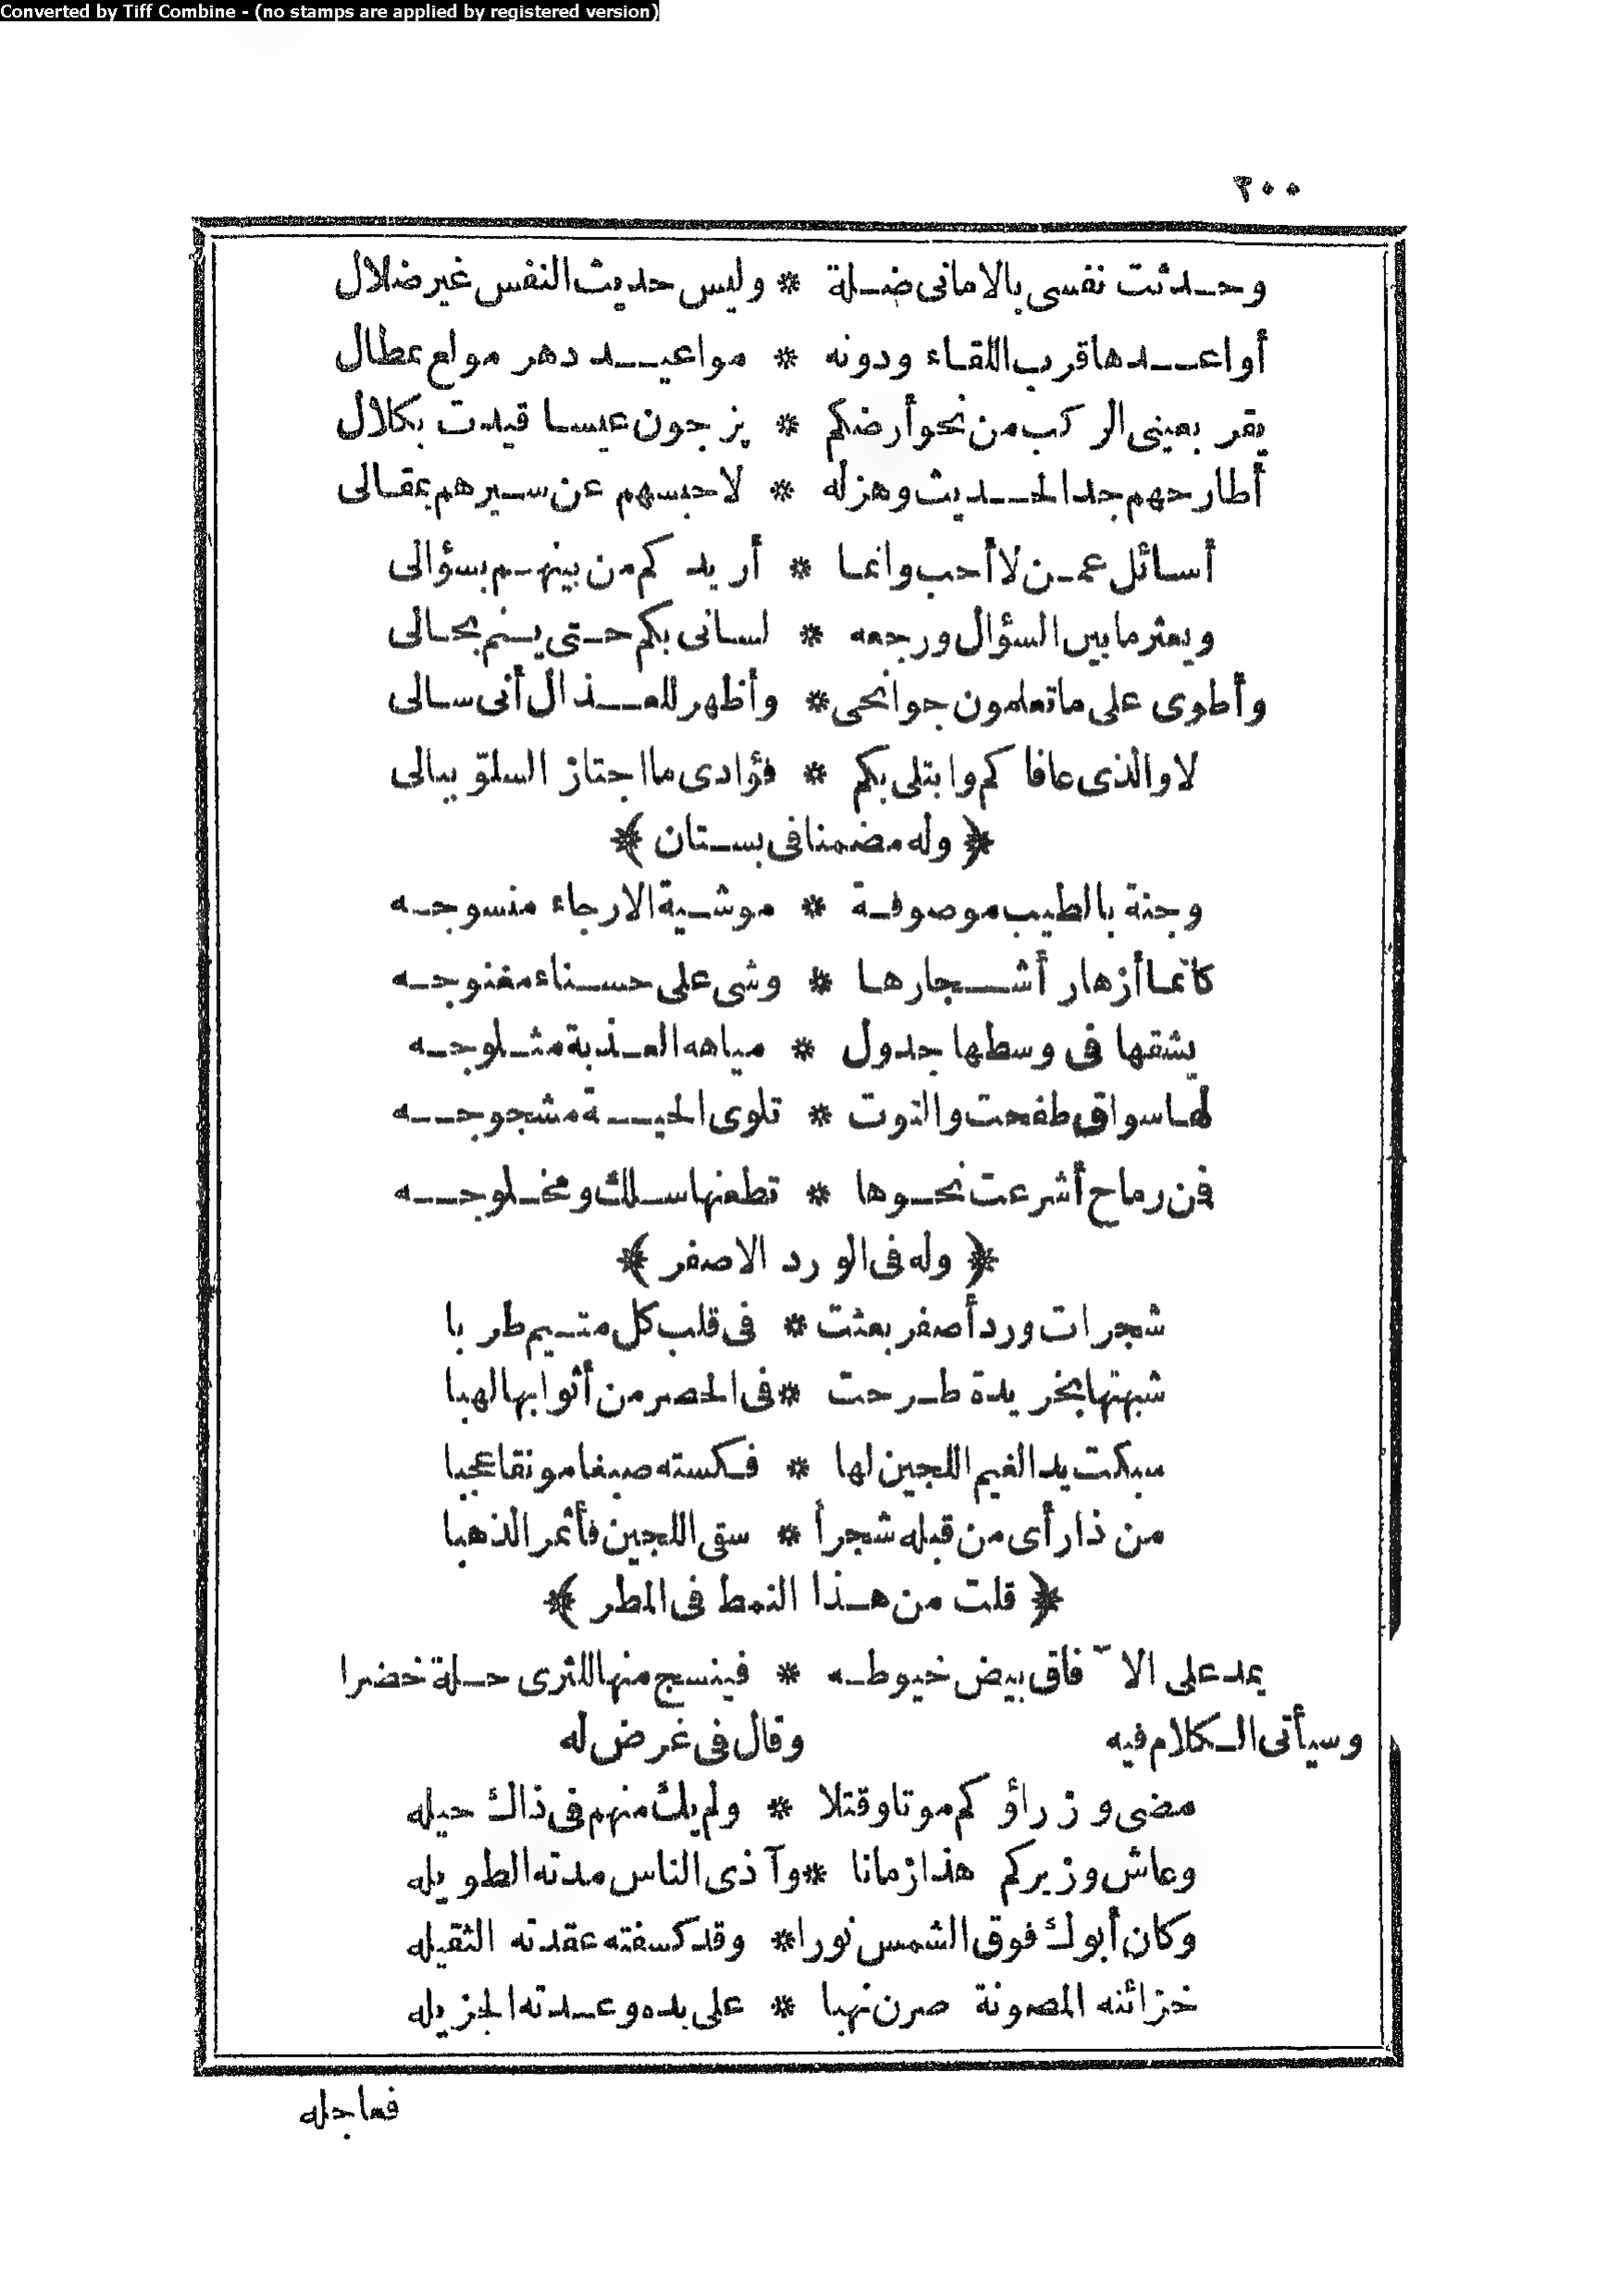 Converted by Tiff Combine - (no stamps are applied by registered version)
٢٠٠
وحدثت نفسى بالامانى ضلة * وليس حديث النفس غير ضلال
أواعدها قرب اللقاء ودونه * مواعيد دهر مولع بمطال
يقر بعينى الركب من نحو أرضكم * يزجون عيسا قيدت بكلال
أطارحهم جد الحديث وهزله * لاحبسهم عن سيرهم بمقالى
أسائل عمن لا أحب وانما * أريدكم من بينهم بسؤالى
ويعثر ما بين السؤال ورجعه * لسانى بكم حتى ينم بحالى
وأطوى على ما تعلمون جوانحى * وأظهر للعذال أنى سالى
لا والذى عافاكم وابتلى بكم * فؤادى ما اجتاز السلوّ ببالى
﴿ وله مضمنا فى بستان ﴾
وجنة بالطيب موصوفة * موشية الارجاء منسوجه
كأنما أزهار أشجارها * وشى على حسناء مغنوجه
يشقها فى وسطها جدول * مياهه العذبة مثلوجه
لها سواق طفحت والتوت * تلوى الحية مشجوجه
فمن رماح أشرعت نحوها * تطعنها سلك ومخلوجه
﴿ وله فى الورد الاصفر ﴾
شجرات ورد أصفر بعثت * فى قلب كل متيم طربا
شبهتها بخريدة طرحت * فى الخصر من أثوابها لهبا
سبكت يد الغيم اللجين لها * فكسته صبغا مونقا عجبا
من ذا رأى من قبله شجراً * سقى اللجين فأثمر الذهبا
﴿ قلت من هذا النمط فى المطر ﴾
يمد على الآفاق بيض خيوطه * فينسج منها للثرى حلة خضرا
وسيأتى الكلام فيه وقال فى غرض له
مضى وزراؤكم موتا وقتلا * ولم يك منهم فى ذاك حيله
وعاش وزيركم هذا زمانا * وآذى الناس مدته الطويله
وكان أبوك فوق الشمس نورا * وقد كسفته عقدته الثقيله
خزائنه المصونة صرن نهبا * على يده وعدته الجزيله
فعاجله